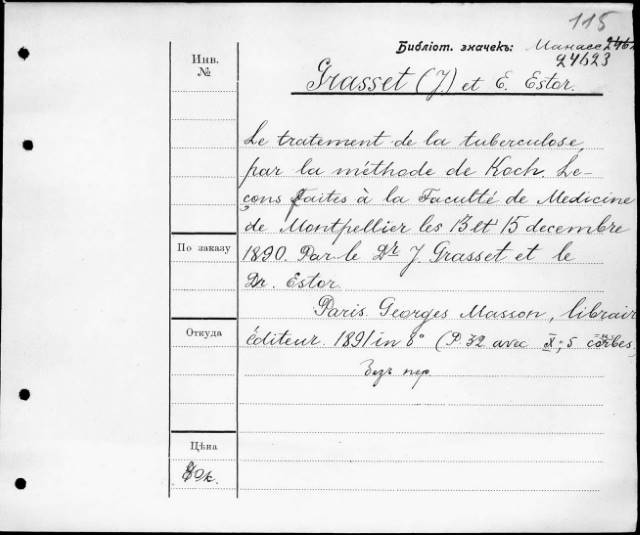 115
Библіот. значекъ: Манасс 2462
24623
Инв.
№
Grasset (J) et E. Estor.
Le tratement de la tuberculose,
par la méthode de Koch. Le-
çons faites à la Faculté de Medicine
de Montpellier les 13 et 15 decembre
1890. Par le Dr J. Grasset et le
Dr. Estor.
По заказу
Paris. Georges Masson, librair
éditeur. 1891 in 8° (P. 32 avec X; 5 corbes.
Откуда
Безъ пер.
Цѣна
80к.